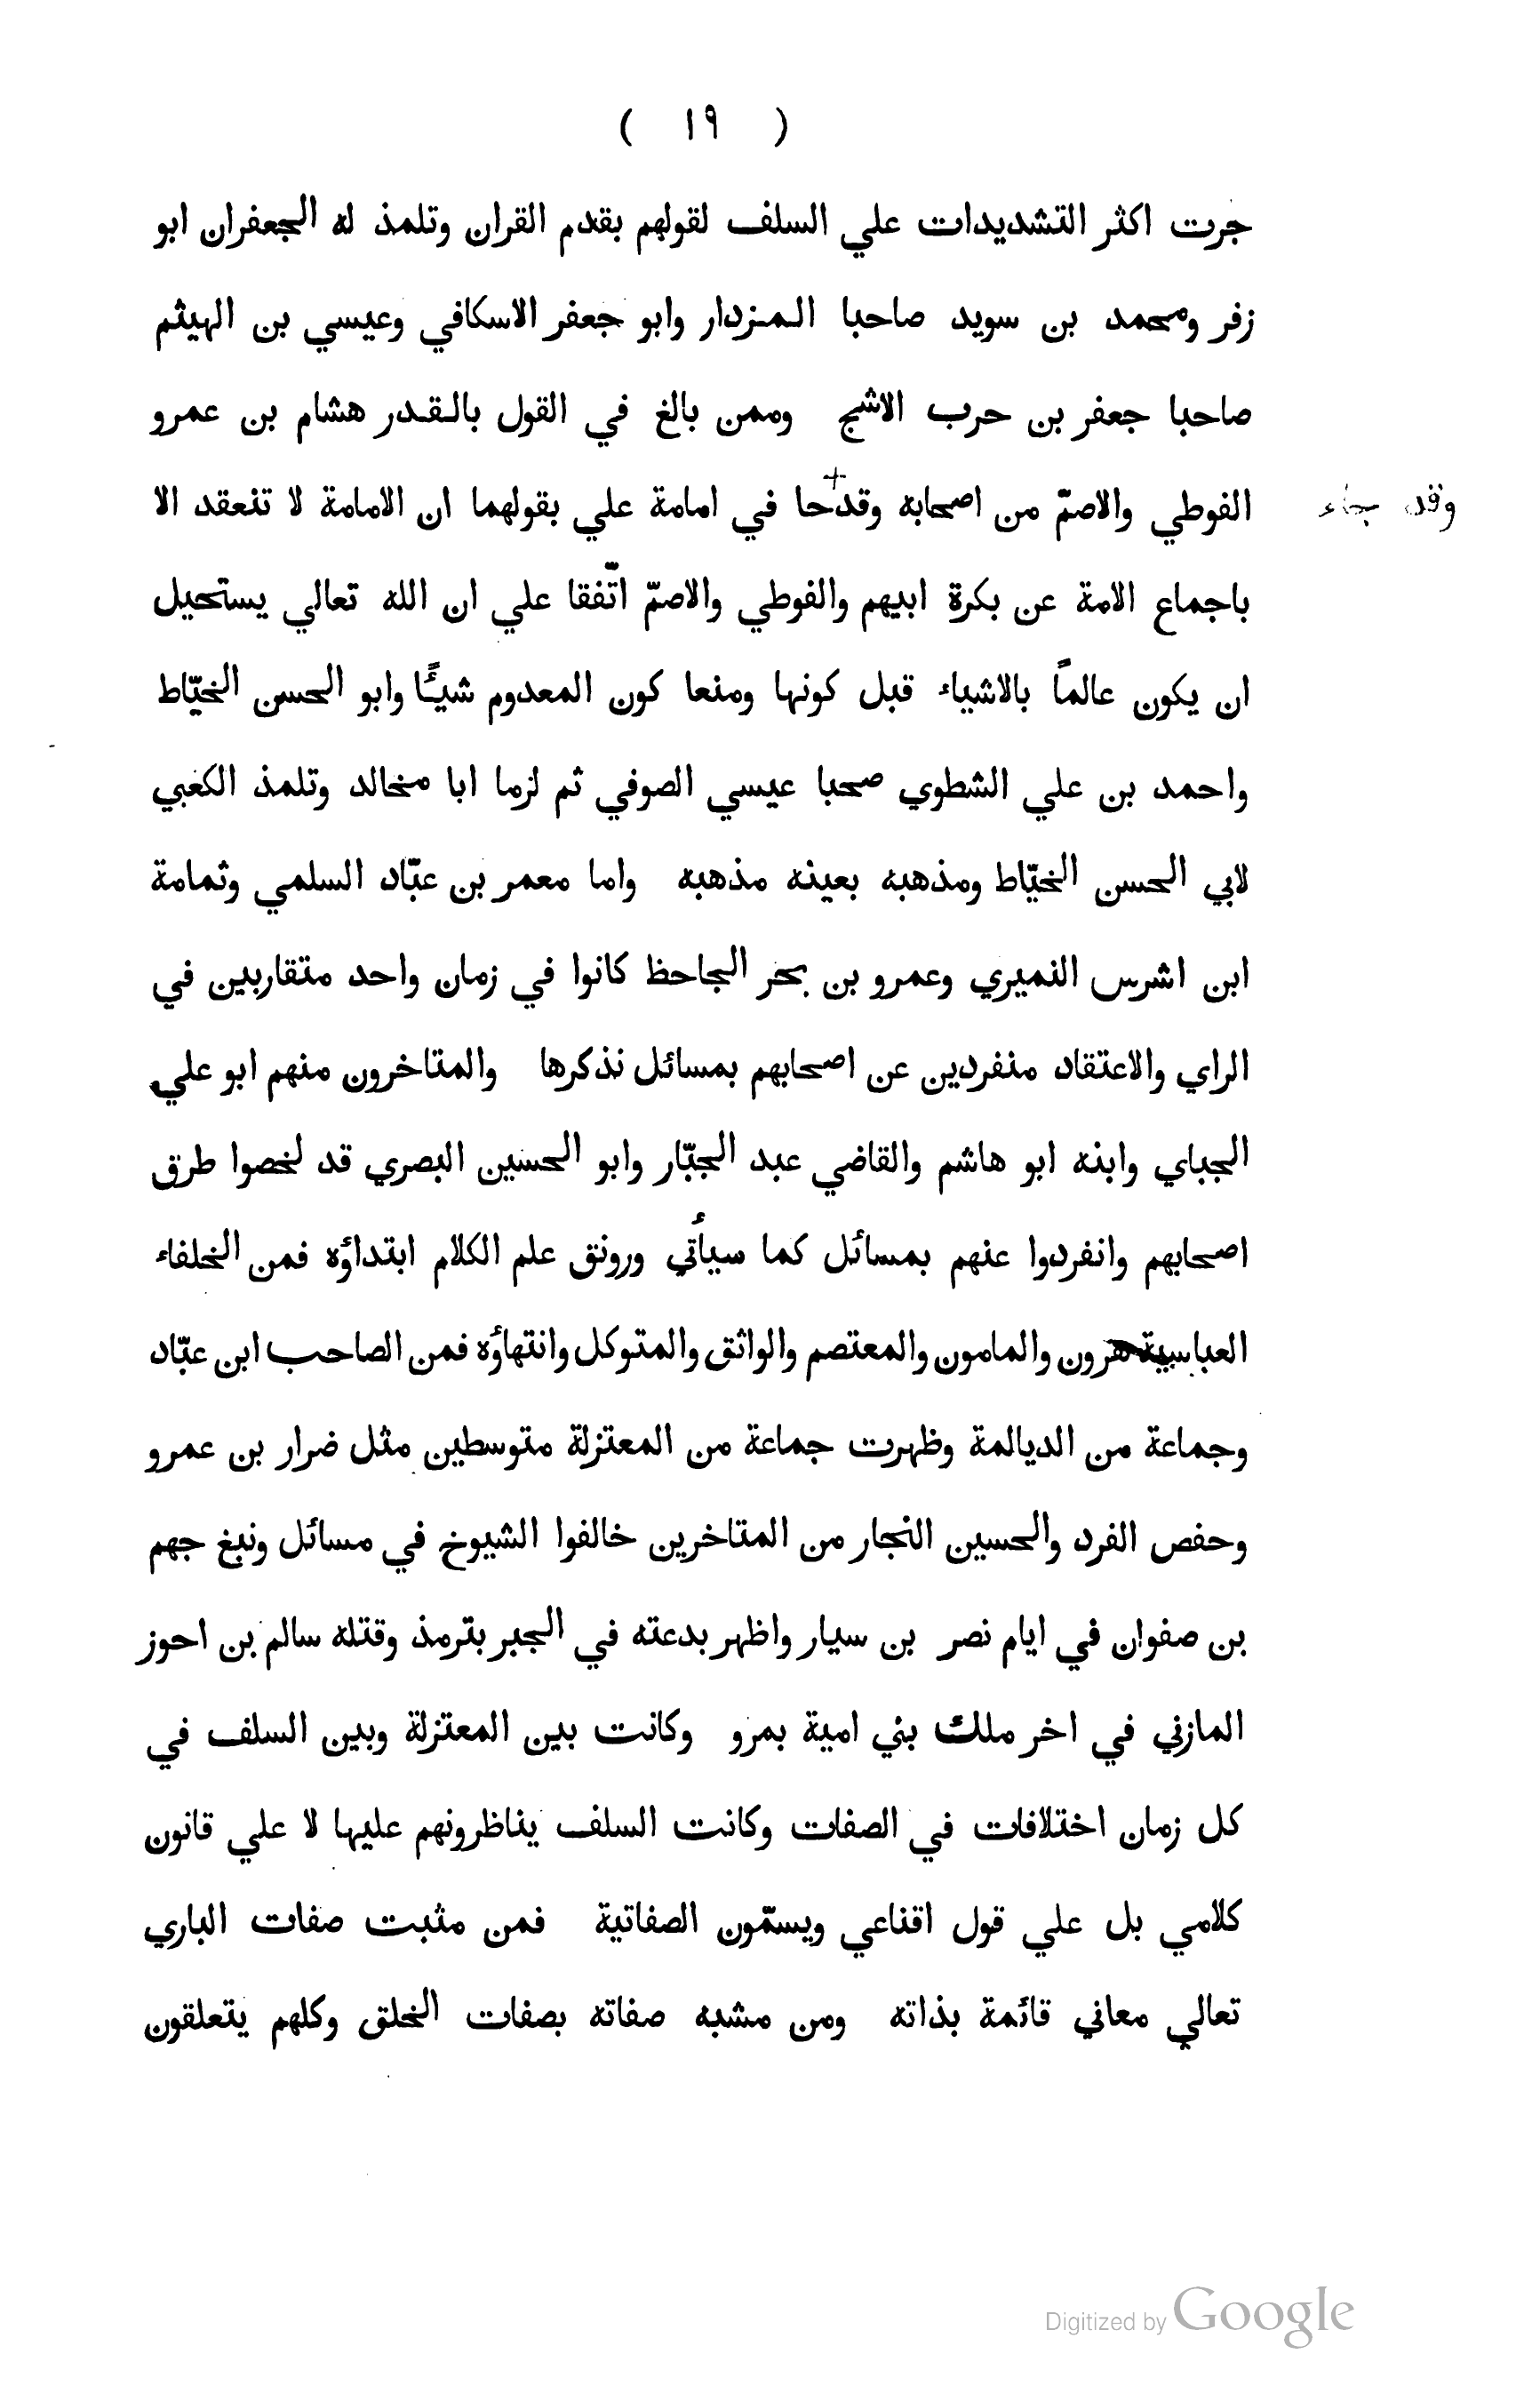 ( ١٩ )
جرت اكثر التشديدات علي السلف لقولهم بقدم القران وتلمذ له الجعفران ابو
زفر ومحمد بن سويد صاحبا المزدار وابو جعفر الاسكافي وعيسي بن الهيثم
صاحبا جعفر بن حرب الاشج وممن بالغ في القول بالقدر هشام بن عمرو
الفوطي والاصمّ من اصحابه وقدحا في امامة علي بقولهما ان الامامة لا تنعقد الا
وقد جاء
باجماع الامة عن بكرة ابيهم والفوطي والاصمّ اتّفقا علي ان الله تعالي يستحيل
ان يكون عالماً بالاشياء قبل كونها ومنعا كون المعدوم شيئًا وابو الحسن الخيّاط
واحمد بن علي الشطوي صحبا عيسي الصوفي ثم لزما ابا مخالد وتلمذ الكعبي
لابي الحسن الخيّاط ومذهبه بعينه مذهبه واما معمر بن عبّاد السلمي وثمامة
ابن اشرس النميري وعمرو بن بحر الجاحظ كانوا في زمان واحد متقاربين في
الراي والاعتقاد منفردين عن اصحابهم بمسائل نذكرها والمتاخرون منهم ابو علي
الجباي وابنه ابو هاشم والقاضي عبد الجبّار وابو الحسين البصري قد لخصوا طرق
اصحابهم وانفردوا عنهم بمسائل كما سيأتي ورونق علم الكلام ابتداؤه فمن الخلفاء
العباسية هرون والمامون والمعتصم والواثق والمتوكل وانتهاؤه فمن الصاحب ابن عبّاد
وجماعة من الديالمة وظهرت جماعة من المعتزلة متوسطين مثل ضرار بن عمرو
وحفص الفرد والحسين النجار من المتاخرين خالفوا الشيوخ في مسائل ونبغ جهم
بن صفوان في ايام نصر بن سيار واظهر بدعته في الجبر بترمذ وقتله سالم بن احوز
المازني في اخر ملك بني امية بمرو وكانت بين المعتزلة وبين السلف في
كل زمان اختلافات في الصفات وكانت السلف يناظرونهم عليها لا علي قانون
كلامي بل علي قول اقناعي ويسمّون الصفاتية فمن مثبت صفات الباري
تعالي معاني قائمة بذاته ومن مشبه صفاته بصفات الخلق وكلهم يتعلقون
Digitized by Google